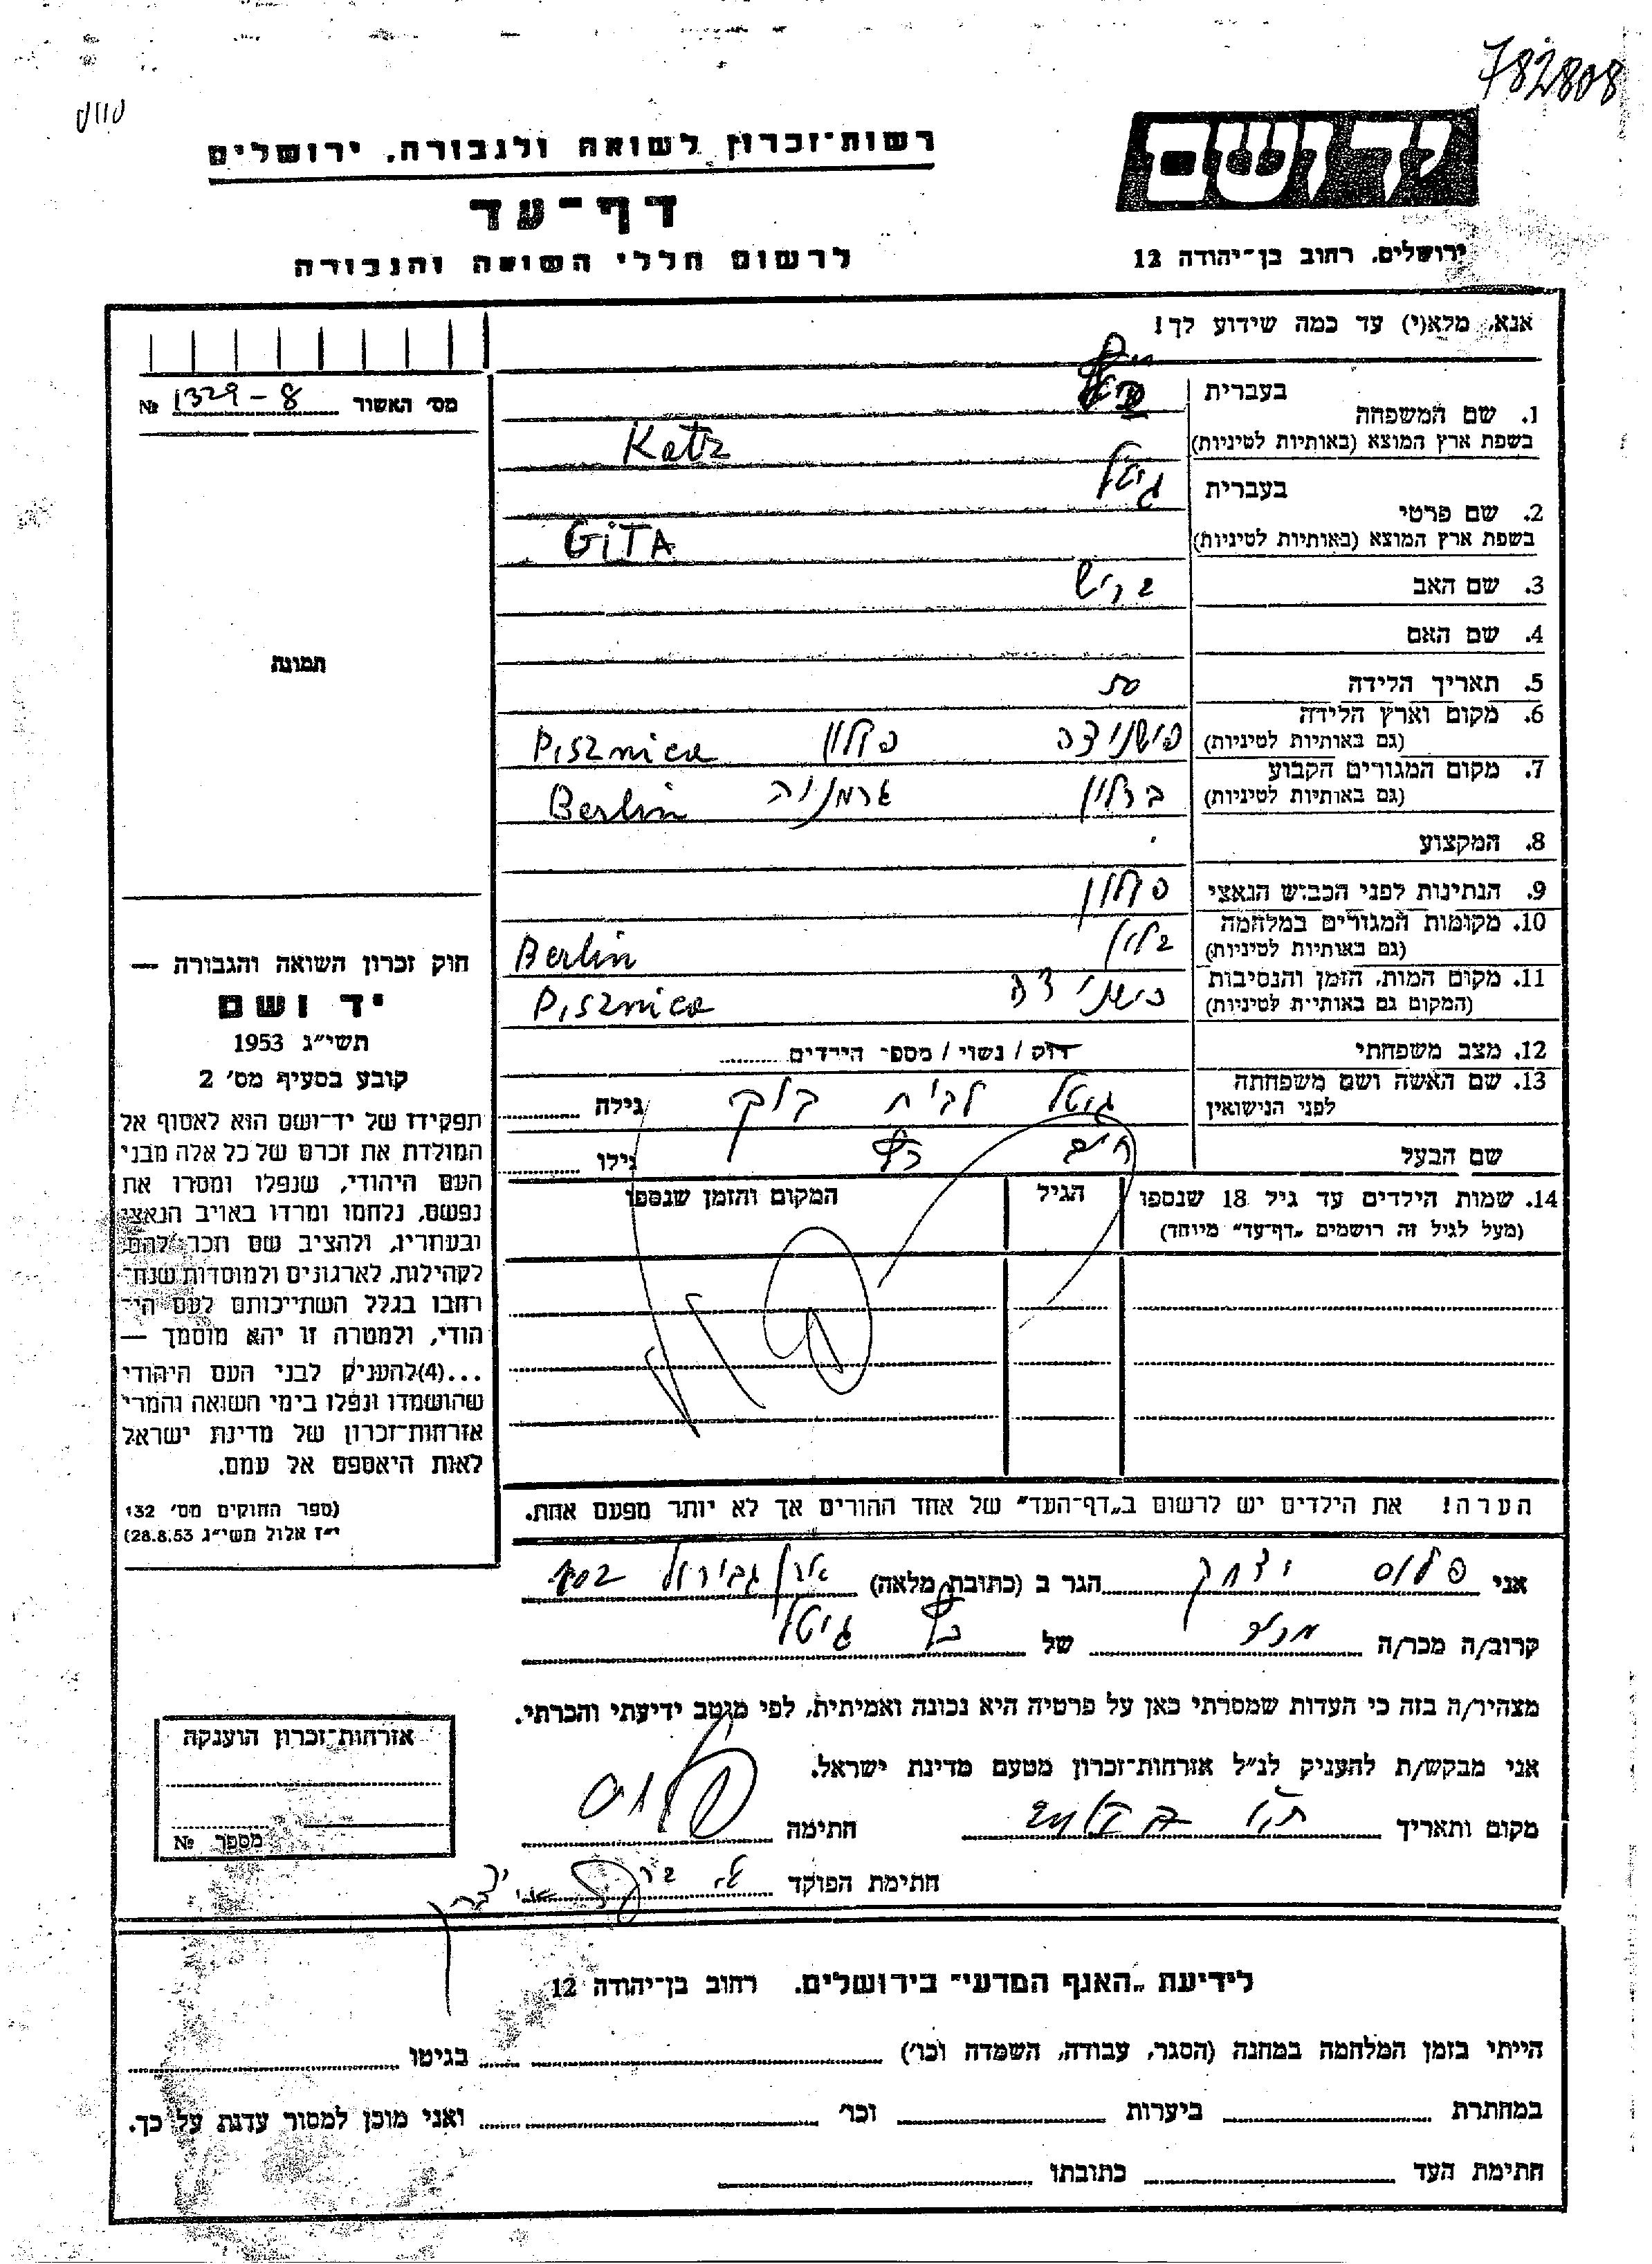 782808
רשות־זכרון לשואה ולגבורה, ירושלים
יד ושם
דף־עד
לרשום חללי השואה והגבורה
ירושלים, רחוב בן־יהודה 12
אנא, מלא(י) עד כמה שידוע לך!
מס' האשור № 1329-8
1. שם המשפחה בעברית
בשפת ארץ המוצא (באותיות לטיניות) Katz
2. שם פרטי בעברית גיטל
בשפת ארץ המוצא (באותיות לטיניות) GiTA
3. שם האב
4. שם האם
5. תאריך הלידה 50
6. מקום וארץ הלידה (גם באותיות לטיניות) פישניצה פולין Pisznica
7. מקום המגורים הקבוע (גם באותיות לטיניות) ברלין גרמניה Berlin
8. המקצוע
9. הנתינות לפני הכבוש הנאצי פולין
10. מקומות המגורים במלחמה (גם באותיות לטיניות) ברלין Berlin
11. מקום המות, הזמן והנסיבות (המקום גם באותיות לטיניות) פישניצה Pisznica
12. מצב משפחתי רווק / נשוי / מספר הילדים
13. שם האשה ושם משפחתה לפני הנישואין גיטל לבית בוק גילה
שם הבעל חיים כץ גילו
14. שמות הילדים עד גיל 18 שנספו הגיל המקום והזמן שנספו
(מעל לגיל זה רושמים „דף־עד" מיוחד)
תמונה
חוק זכרון השואה והגבורה —
יד ושם
תשי"ג 1953
קובע בסעיף מס' 2
תפקידו של יד־ושם הוא לאסוף אל
המולדת את זכרם של כל אלה מבני
העם היהודי, שנפלו ומסרו את
נפשם, נלחמו ומרדו באויב הנאצי
ובעוזריו, ולהציב שם וזכר להם,
לקהילות, לארגונים ולמוסדות שנח־
רחבו בגלל השתייכותם לעם הי־
הודי, ולמטרה זו יהא מוסמך —
...(4)להעניק לבני העם היהודי
שהושמדו ונפלו בימי השואה והמרי
אזרחות־זכרון של מדינת ישראל
לאות היאספם אל עמם.
(ספר החוקים מס' 132
י"ז אלול תשי"ג 28.8.53)
הערה! את הילדים יש לרשום ב„דף־העד" של אחד ההורים אך לא יותר מפעם אחת.
אני יצחק הגר ב (כתובת מלאה) אבן גבירול
קרוב/ה מכר/ה מכיר של כץ גיטל
מצהיר/ה בזה כי העדות שמסרתי כאן על פרטיה היא נכונה ואמיתית, לפי מיטב ידיעתי והכרתי.
אני מבקש/ת להעניק לנ"ל אזרחות־זכרון מטעם מדינת ישראל.
מקום ותאריך חתימה
חתימת הפוקד
אזרחות־זכרון הוענקה
מספר №
לידיעת „האגף המדעי" בירושלים. רחוב בן־יהודה 12
הייתי בזמן המלחמה במחנה (הסגר, עבודה, השמדה וכו') בגיטו
במחתרת ביערות וכו' ואני מוכן למסור עדות על כך.
חתימת העד כתובתו